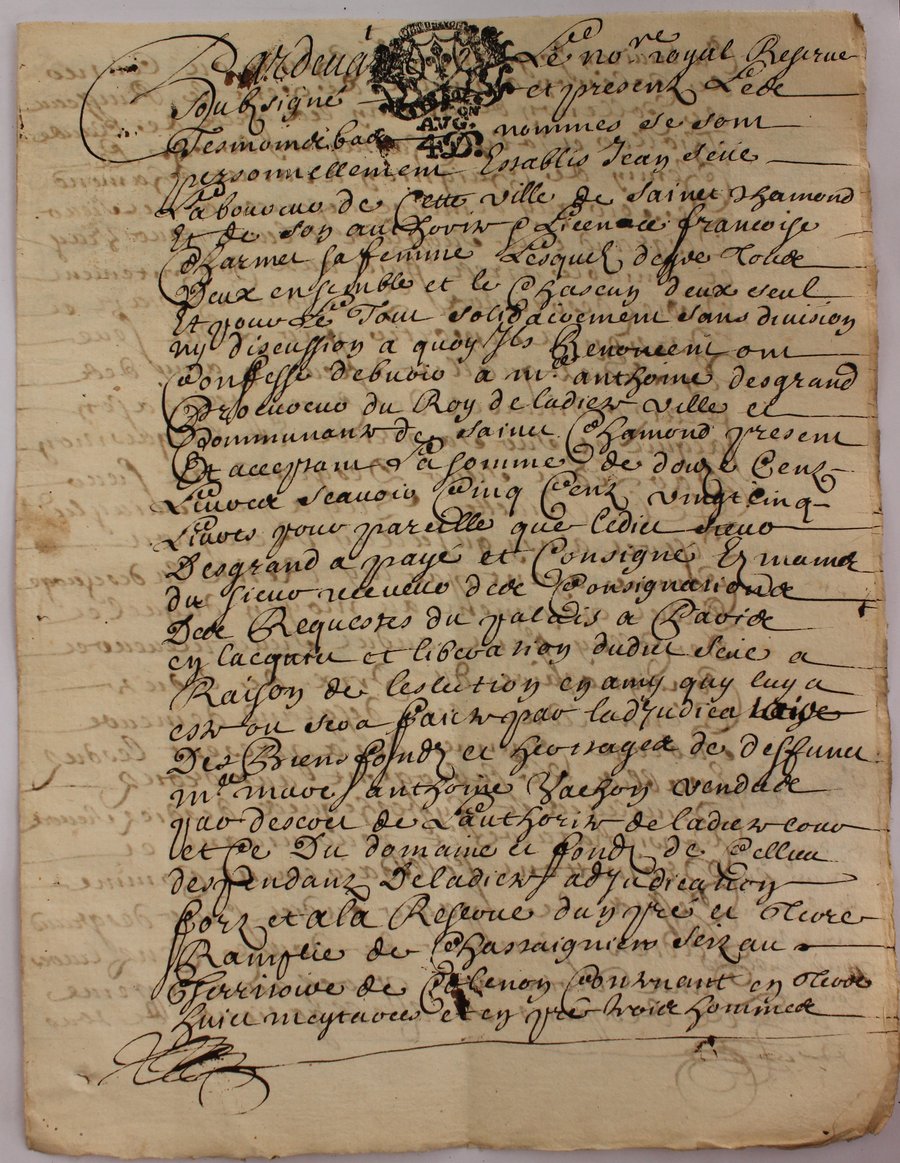 Pardevant Le no.re royal Reserve
Soubsigné et presentz Les
AVG.
4 D.
Tesmoins bas nommes se sont
personnellement Establis Jean Serie
Laboureur de Cette ville de Sainct Chamond
Et de son authorite & Licence francoise
Charmet sa femme Lesquels de gre Tous
Deux ensemble et le Chascun deux seul
Et pour Le Tout solidairement sans division
ny discussion a quoy Ils Renoncent ont
Confesse debvoir a m.e anthoine desgrand
Procureur du Roy de ladicte ville et
Communaute de Sainct Chamond present
Et acceptant La somme de douze Centz
Livres Scavoir Cinq Centz vingt cinq
Livres pour pareille que ledict sieur
Desgrand a payé et Consigné Ez mains
du sieur receveur des Consignations
Des Requestes du palais a Paris
en lacquit et liberation dudict Serie a
Raison de leslection en amy quy luy a
este ou sera faicte par ladjudicataire
Des Biens fondz et heritages de deffunct
m.e marc anthoine Vachon vendus
par descret de Lauthorite de ladicte cour
et Ce Du domaine et fondz de Cellieu
despendantz De ladicte adjudication
forz et a la Reserve dun pré et Terre
Ramplie de Chastaigniers Seiz au
Territoire de Contenant en Terre
huict meyterees et en pré trois hommes